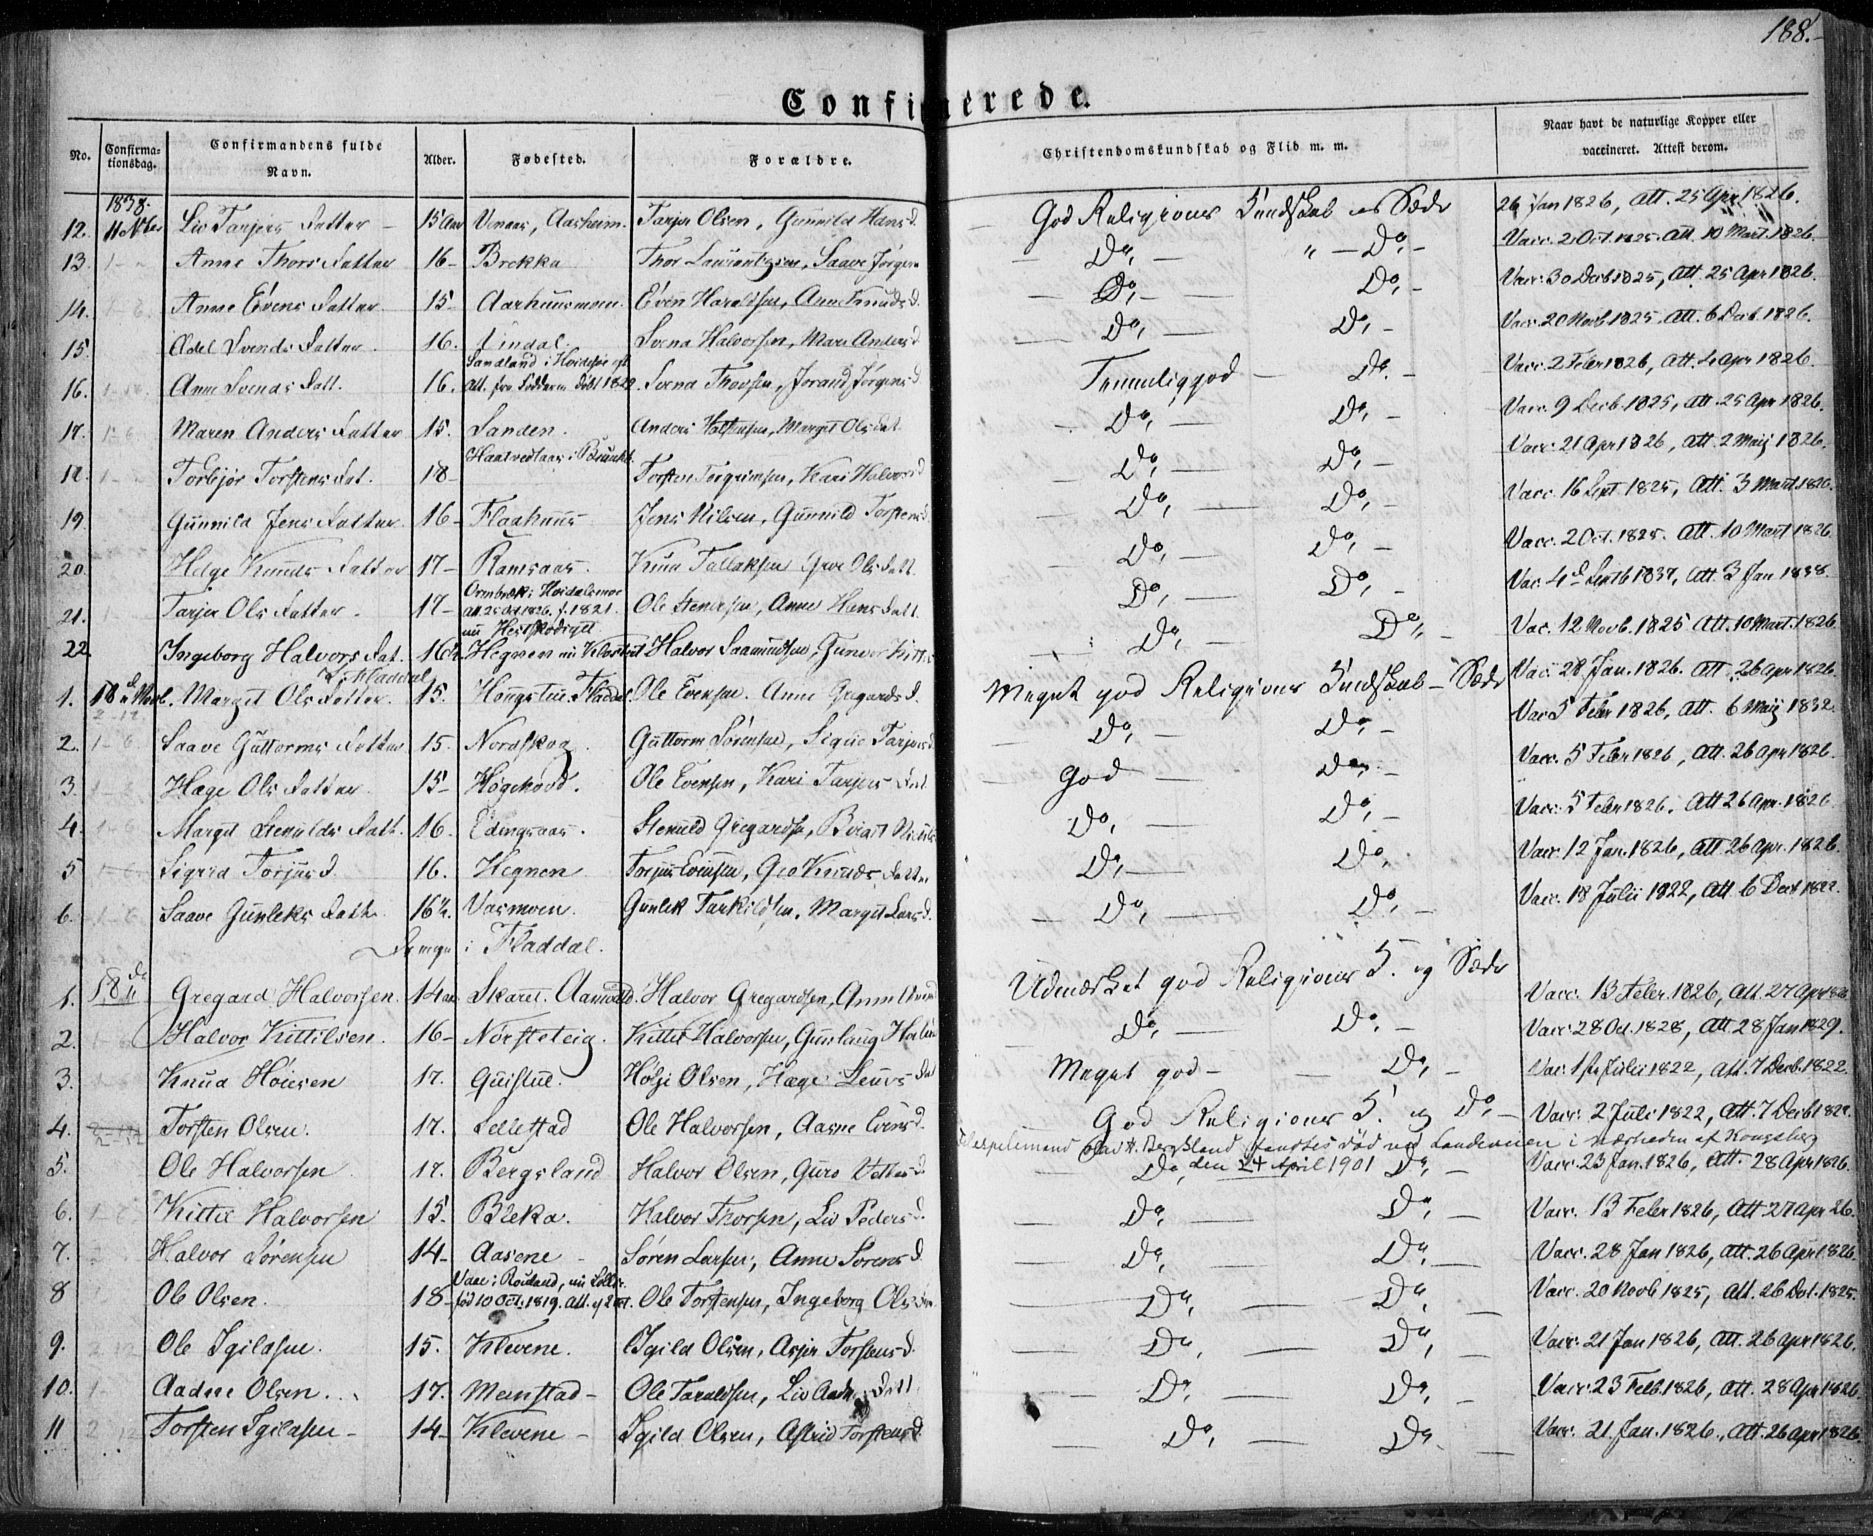 188.
Confirmerede.
No. Confirmationsdag. Confirmandens fulde Navn. Alder. Fødested. Forældre. Christendomskundskab og Flid m. m. Naar havt de naturlige Kopper eller vaccineret. Attest derom.
1838.
12. 11 Liv Tarjeis Datter 15 Aar Aasheim. Tarjei Olsen, Gunnild Hansd. God Religions Kundskab og Sæder 26 Jan 1826, Att. 25 Apr 1826.
13 Anne Thors Datter 16 Brekka Thor Saave Jørgens Do, " Do, Vacc. 2 Oct. 1825. Att. 10 Mart. 1826.
14. Anne Evens Datter 15 Aarhuusmoen. Even Haraldsen, Anne Knudsd. Do, Do, Vacc. 30 Decb 1825, Att. 25 Apr 1826.
15. Svends Datter 16. Lindal. Svend Halvorsen, Mari Andersd. Do, Do, Vacc. 20 Novb 1825. Att. 6 Decb. 1826.
16. Anne Svends Datt. 16. Sandland i Hvideseie Att. fra født 1822. Svend Thorsen, Jorand Jørgensd. Temmelig god Do. Vacc. 2 Febr 1826, Att. 4 Apr 1826.
17. Maren Anders Datter 15. Sanden. Anders Margit Ols Dat Do, Do, Vacc. 9 Decb. 1825, Att. 25 Apr 1826.
18. Torbjør Torstens Dat. 18 Torsten Kari Halvorsd Do, Do, Vacc. 21 Apr 1826, Att. 2 Maij 1826.
19. Gunnild Jens Datter 16 Flaahuus Jens Nilsen, Gunnild Torstensd. Do, Do, Vacc. 16 Sept 1825, Att. 3 Mart 1826.
20 Helge Knuds Datter 17 Ramsaas. Knud Tallaksen Ols Datt Do, Do, Vacc. 2 Oct. 1825. Att. 10 Mart 1826.
21. Tarjer Ols Datter 17 i Hvidesøe Att 25 Oct 1826. f. 1821. Ole Anne Hans Datt. Do, Do, Vac. 4d Septb 1837, Att. 3 Jan 1838.
22 Ingeborg Halvors Dat. 16½ Hegnen nu Halvor Saamundsen, Gunvor Kittels Do, Do, Vac. 12 Novb. 1825 Att. 10 Mart. 1826
Fladdal
1. 18d Margit Ols Datter. 15. Fladdal Ole Evensen. Anne Gregardsd. Meget god Religions Kundskab Sæder Vacc. 28 Jan. 1826. Att. 26 Apr 1826.
2. Saave Guttorms Datter 15. Nordskog. Guttorm Sørensen, Signe Tarjeisd Do, Do, Vacc 5 Febr 1826, Att. 6 Maij 1832.
3. Hæge Ols Datter 15 Høgehovd. Ole Evensen, Kari Tarjeis Dat God Do, Vacc. 5 Febr 1826, Att. 26 Apr 1826.
4. Margit Stenulds Datt. 16. Edingsaas. Stenuld Gregardsen, Birgit Do, Do, Vacc. 5 Febr 1826. Att 26 Apr. 1826
5 Sigrid Torjusd 16. Hegnen Torjus Evensen, Gro Knuds Datter Do, Do, Vacc. 12 Jan. 1826, Att 26 Apr. 1826.
6. Saave Gunleks Datt. 16½. Vasmoen. Gunlek Tarkildsen, Margit Larsd. Do, Do, Vacc. 18 Julii 1822, Att 6 Decb 1822.
Drenge i Fladdal.
1. 18d Gregard Halvorsen. 14 Aar Skaret. Aamodt. Halvor Gregardsen, Anne Udmærket god Religions K. og Sæder Vacc. 13 Febr. 1826, Att. 27 Apr 1826
2. Halvor Kittilsen. 16 Norsteteig. Kittel Halvorsen, Gunlaug Do, Do, Vacc. 28 Oct. 1828, Att. 28 Jan 1829.
3. Knud Høiesen 17. Quistue. Høljé Olsen, Hæge Dat Meget god Do, Vac. 1ste Julii 1822, Att. 7 Decb. 1822
4. Torsten Olsen. 17. Lellestad Ole Halvorsen, Aasne Evensd. God Religions K. og Do, Vacc. 2 Juli 1822, Att. 7 Decb 1822.
Olav H. Bergsland fandtes død ved Landeveien i nærheden af Kongsberg
den 24 April 1901
5. Ole Halvorsen 17. Bergsland Halvor Olsen, Guro Do, Do, Vacc. 23 Jan. 1826, Att. 28 Apr 1826.
6. Kittil Halvorsen 15. Bleka. Halvor Thorsen, Liv Pedersd. Do, Do, Vacc. 13 Febr 1826, Att 27 Apr 26.
7. Halvor Sørensen 14 Aasene Søren Larsen, Anne Sørensd Do, Do, Vacc. 28 Jan 1826, Att. 26 April 1826
8 Ole Olsen. 18 i Rouland, nu født 10 Oct. 1819. Att. Ole Torstensen, Ingeborg Ols Dat Do, Do, Vacc. 20 Novb 1825, Att. 26 Dec. 1825.
9. Ole Igildsen. 15. Klevene. Igild Olsen, Torstensd. Do, Do, Vacc. 21 Jan 1826, Att. 26 Apr 1826.
10. Aadne Olsen. 17. Menstad Ole Taraldsen, Liv Datt. Do, Do, Vacc. 23 Feb. 1826, Att. 28 Apr 1826.
11 Torsten Igildsen 14 Klevene Igild Olsen, Astrid Torstensd. Do, Do. Vacc. 21. Jan. 1826., Att. 26 Apr 1826.